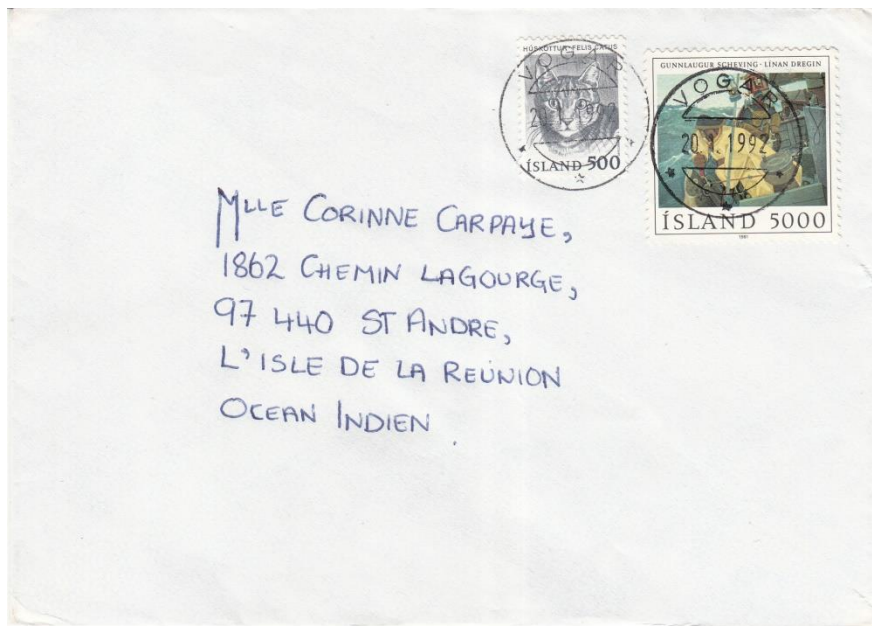 HÚSKÖTTUR·FELIS CATUS
ÍSLAND 500
VOGAR
GUNNLAUGUR SCHEVING · LÍNAN DREGIN
VOGAR
20.1.1992
ÍSLAND 5000
1981
MLLE CORINNE CARPAYE,
1862 CHEMIN LAGOURGE,
97 440 ST ANDRE,
L'ISLE DE LA REUNION
OCEAN INDIEN